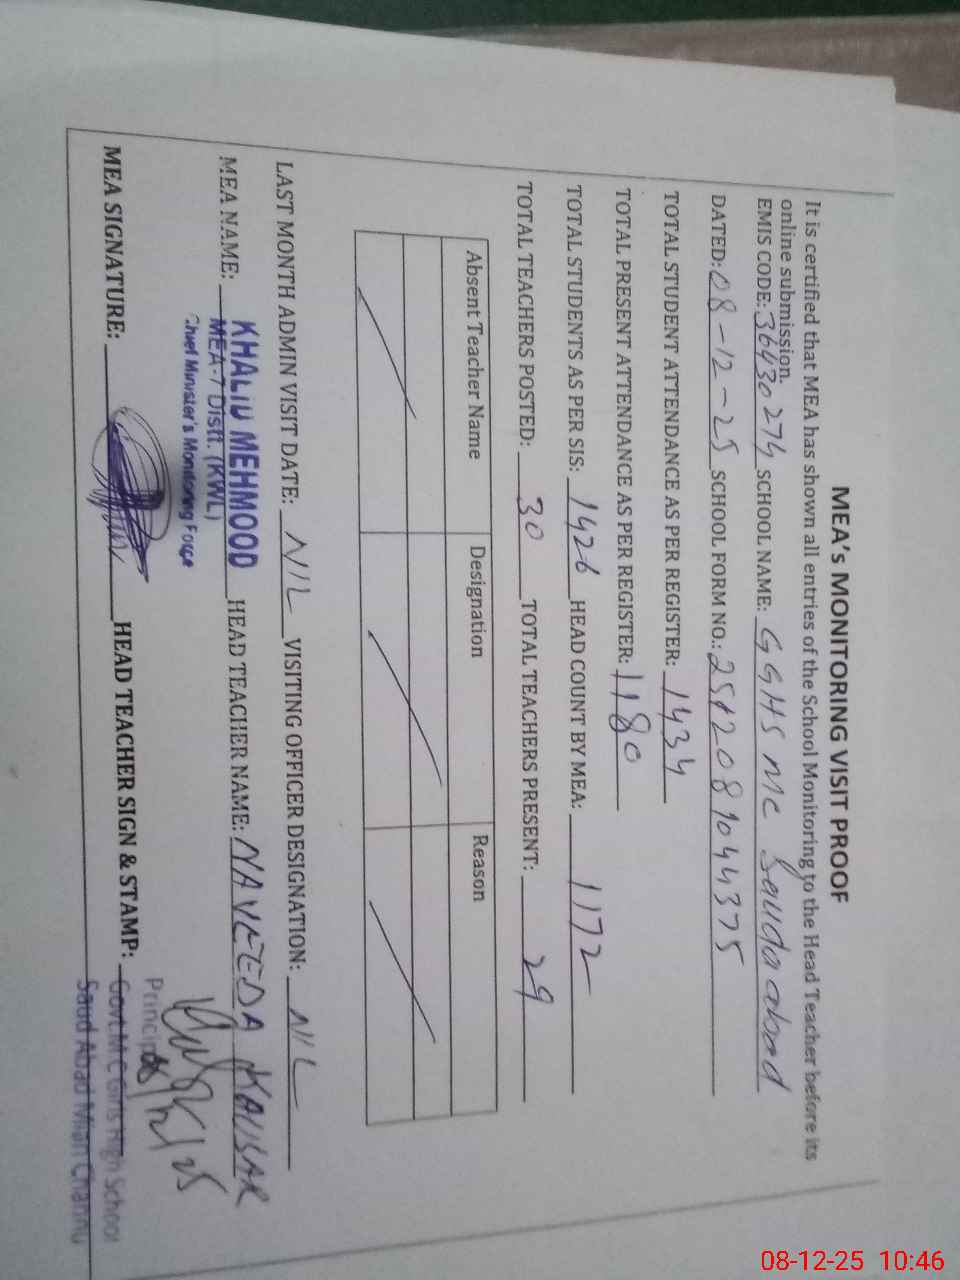 MEA's MONITORING VISIT PROOF
It is certified that MEA has shown all entries of the School Monitoring to the Head Teacher before its
online submission.
EMIS CODE: 36430274 SCHOOL NAME: GGHS MC Saudaabad
DATED: 08-12-25 SCHOOL FORM NO.: 2512081044375
TOTAL STUDENT ATTENDANCE AS PER REGISTER: 1434
TOTAL PRESENT ATTENDANCE AS PER REGISTER: 1180
TOTAL STUDENTS AS PER SIS: 1426 HEAD COUNT BY MEA: 1172
TOTAL TEACHERS POSTED: 30 TOTAL TEACHERS PRESENT: 29
Absent Teacher Name Designation Reason
LAST MONTH ADMIN VISIT DATE: NIL VISITING OFFICER DESIGNATION: NIL
MEA NAME: KHALID MEHMOOD HEAD TEACHER NAME: NAVEEDA KAUSAR
MEA-7 Distt. (KWL)
Chief Minister's Monitoring Force
MEA SIGNATURE: HEAD TEACHER SIGN & STAMP:
Principal
Govt.M.C Girls High School
Saud Abad Mian Channu
08-12-25 10:46